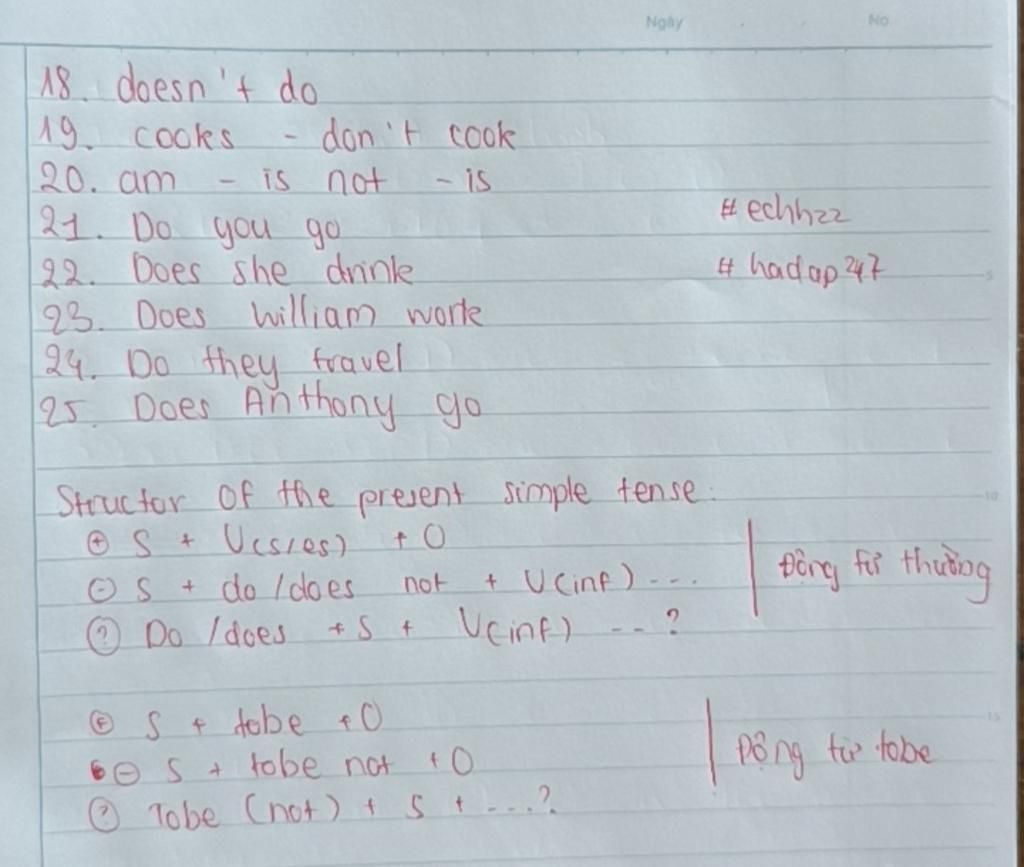 Ngày . . No.
18. doesn't do
19. cooks - don't cook
20. am - is not - is
21. Do you go
#echh22
22. Does she drink
# hadap247
23. Does William work
24. Do they travel
25. Does Anthony go
Structor Of the present simple tense:
(+) S + V(s/es) + O
(-) S + do/does not + V(inf) ...
Động từ thường
(?) Do/does + S + V(inf) -- ?
(+) S + tobe + O
(-) S + tobe not + O
Động từ tobe
(?) Tobe (not) + S + ...?
5
10
15